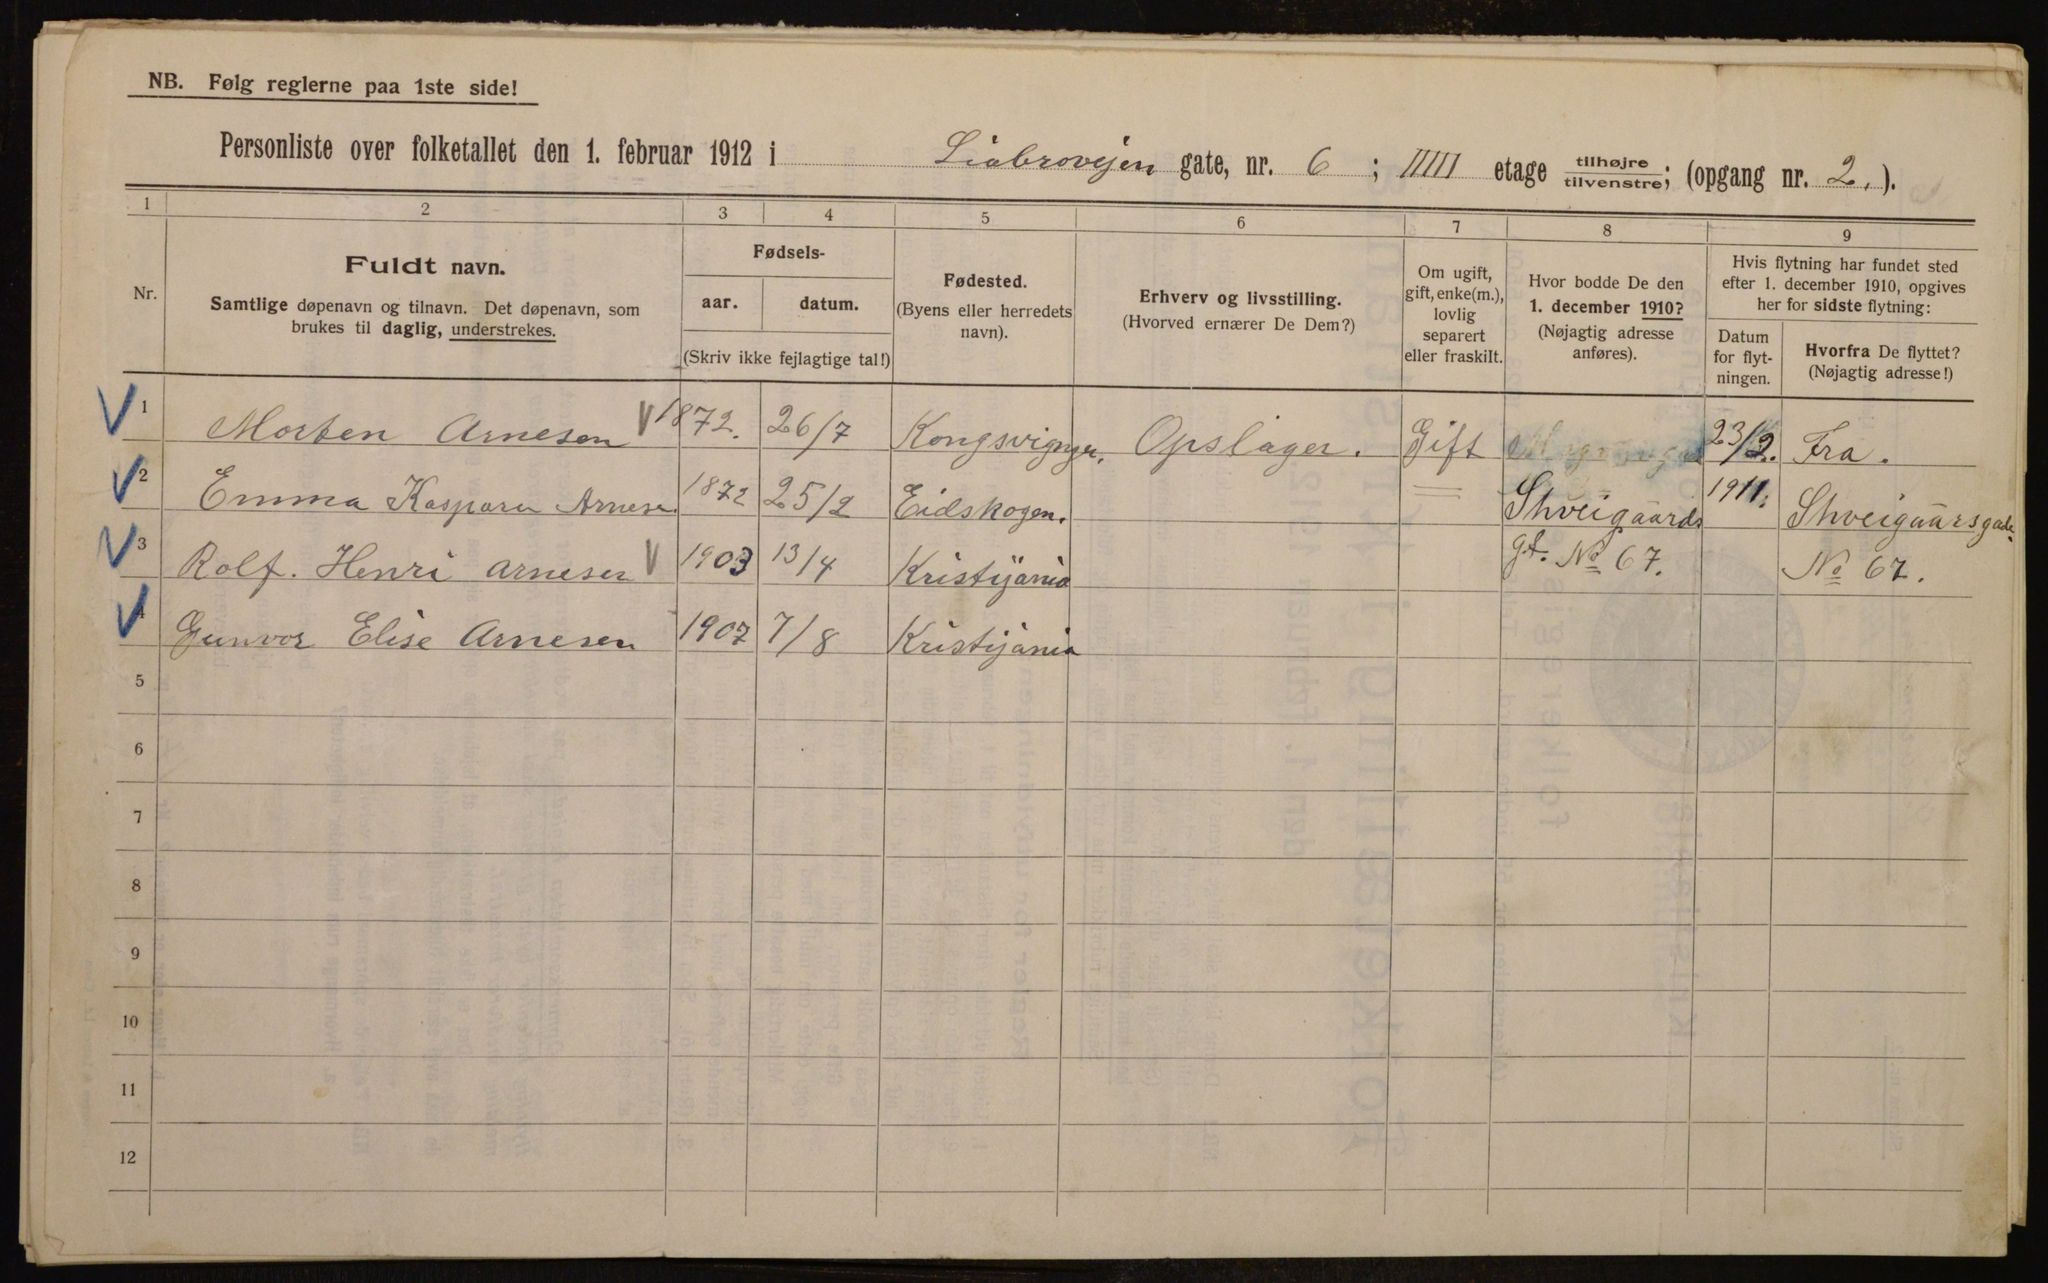 NB. Følg reglerne paa 1ste side!
Personliste over folketallet den 1. februar 1912 i Liabrovejen gate, nr. 6 ; IIIII etage tilhøjre tilvenstre; (opgang nr. 2.).
1 2 3 4 5 6 7 8 9
Nr.
Fuldt navn.
Samtlige døpenavn og tilnavn. Det døpenavn, som
brukes til daglig, understrekes.
Fødsels-
aar. datum.
(Skriv ikke fejlagtige tal!)
Fødested.
(Byens eller herredets
navn).
Erhverv og livsstilling.
(Hvorved ernærer De Dem?)
Om ugift,
gift, enke(m.),
lovlig
separert
eller fraskilt.
Hvor bodde De den
1. december 1910?
(Nøjagtig adresse
anføres).
Hvis flytning har fundet sted
efter 1. december 1910, opgives
her for sidste flytning:
Datum
for flyt-
ningen.
Hvorfra De flyttet?
(Nøjagtig adresse!)
1 Morten Arnesen 1872. 26/7 Kongsvignger. Opslager. Gift 23/2. Fra.
2 Emma Kaspara Arnesen 1872 25/2 Eidskogen. = Shveigaards 1911. Shveigaarsgade.
3 Rolf. Henri Arnesen 1903 13/4 Kristijania gt. No 67. No 67.
4 Gunvor Elise Arnesen 1907 7/8 Kristijania
5
6
7
8
9
10
11
12